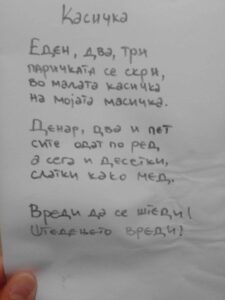 Касичка
Еден, два, три
паричката се скри,
во малата касичка
на мојата масичка.
Денар, два и пет
сите одат по ред,
а сега и десетки,
слатки како мед.
Вреди да се штеди!
Штедењето вреди!